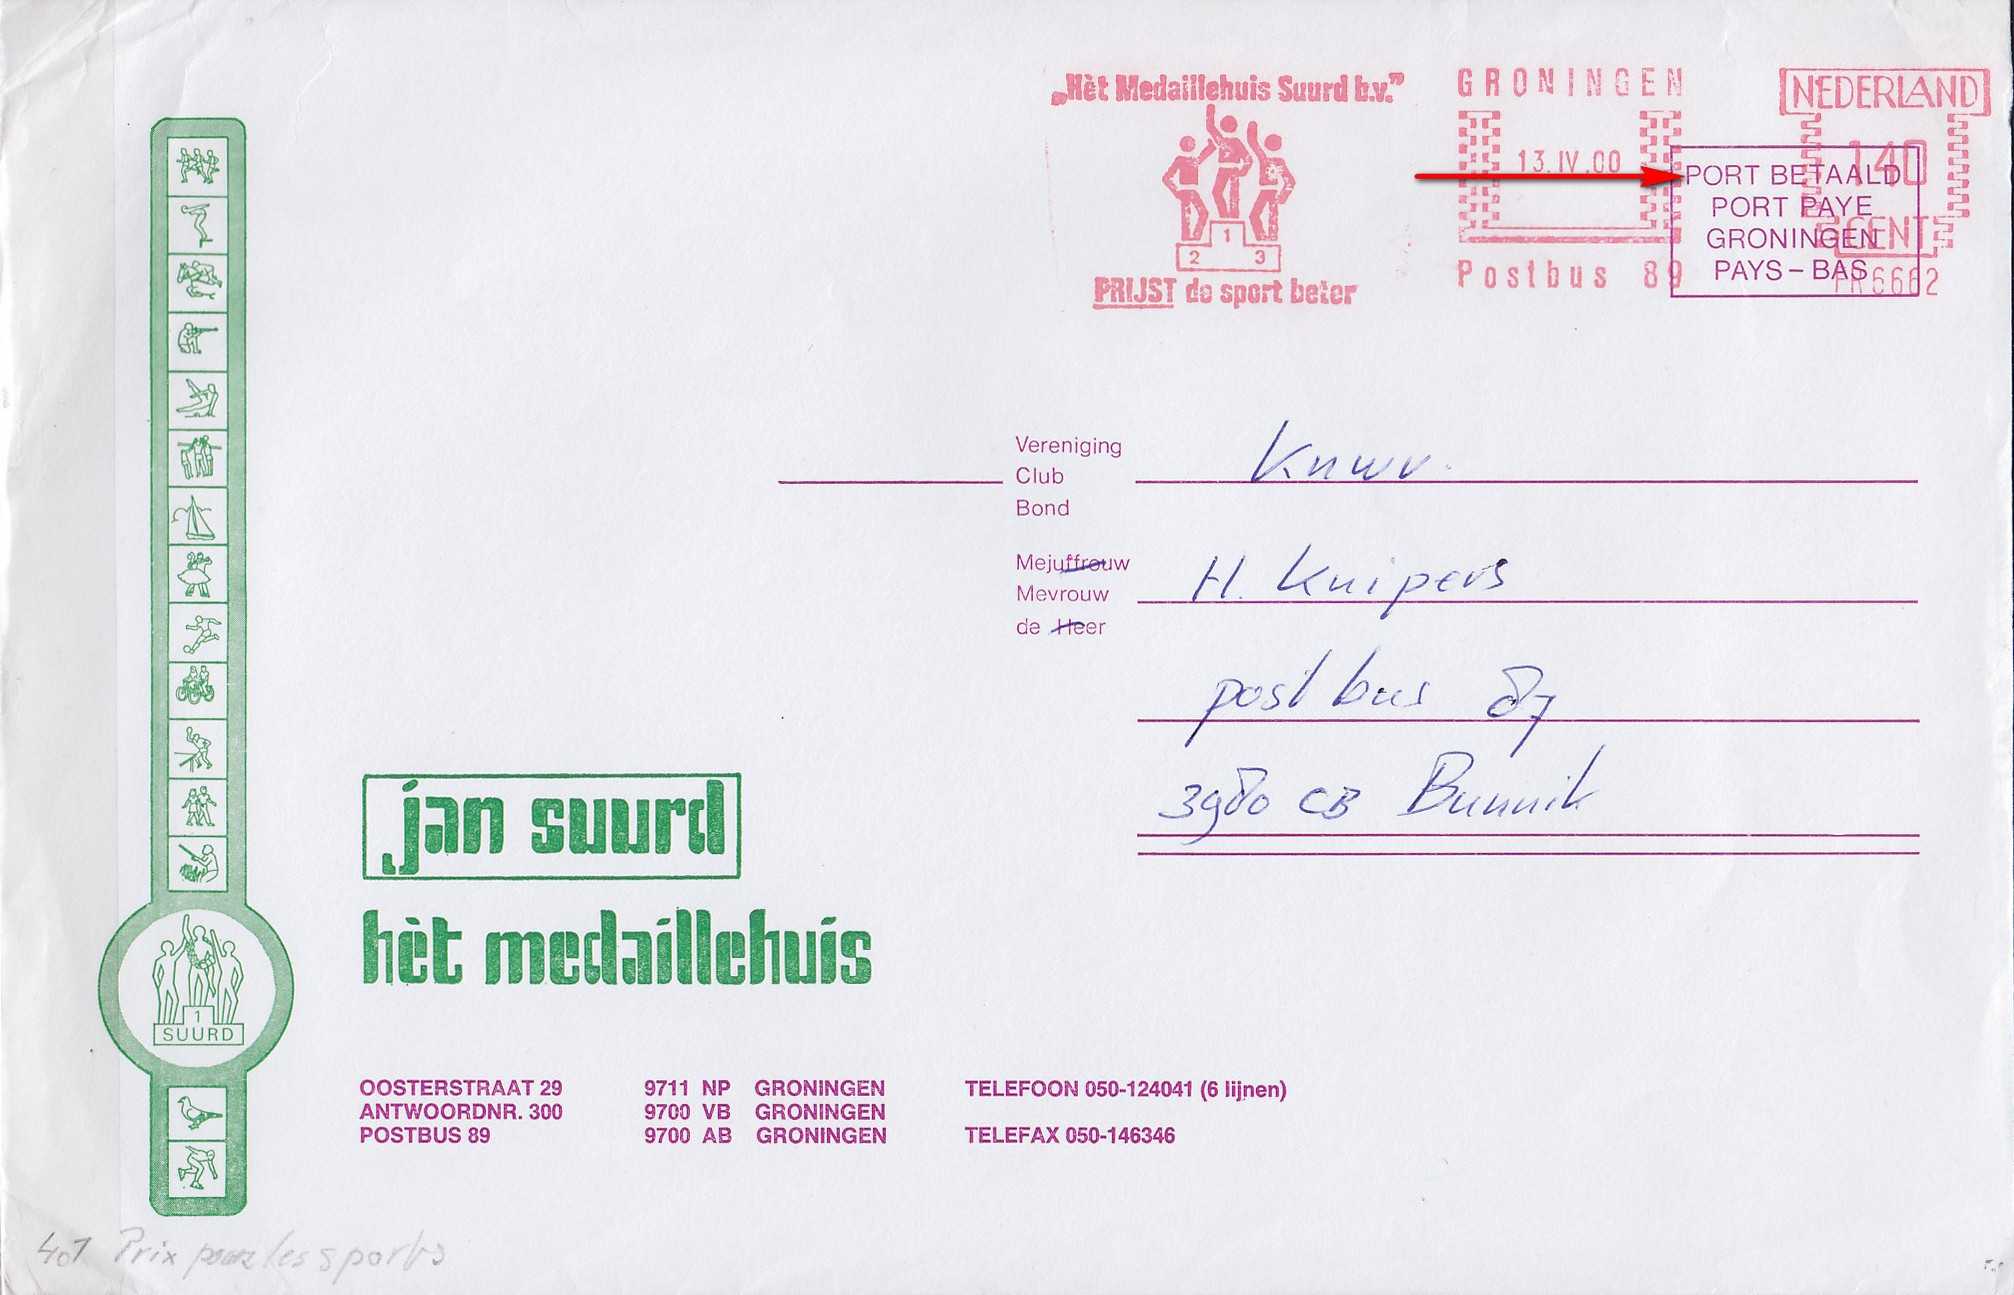 „Hèt Medaillehuis Suurd b.v.”
1
2 3
PRIJST de sport beter
GRONINGEN
13.IV.00
Postbus 89
NEDERLAND
140
CENT
FR6662
PORT BETAALD
PORT PAYE
GRONINGEN
PAYS – BAS
Vereniging
Club
Bond
Knwv.
Mejuffrouw
Mevrouw
de Heer
H. Kuipers
postbus 87
3980 CB Bunnik
jan suurd
hèt medaillehuis
1
SUURD
OOSTERSTRAAT 29 9711 NP GRONINGEN TELEFOON 050-124041 (6 lijnen)
ANTWOORDNR. 300 9700 VB GRONINGEN
POSTBUS 89 9700 AB GRONINGEN TELEFAX 050-146346
407 Prix pour les sports